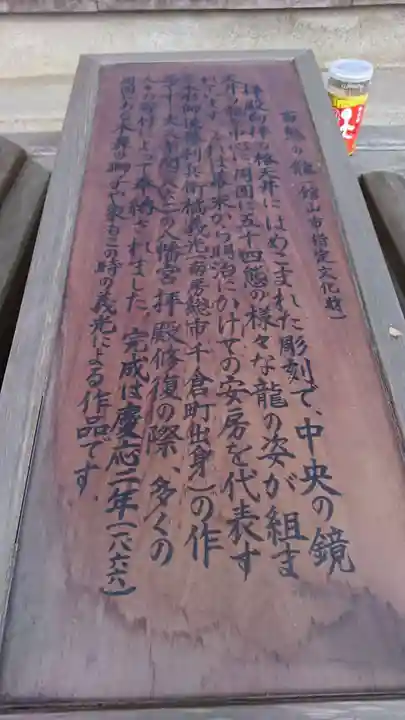 百態の龍(館山市指定文化財)
拝殿向拝の格天井にはめこまれた彫刻で、中央の鏡
天井を中心に周囲に五十四態の様々な龍の姿が組ま
れています。これは幕末から明治にかけての安房を代表す
る彫物師後藤利兵衛橘義光(南房総市千倉町出身)の作
の八幡宮拝殿修復の際、多くの
人々の寄付によって奉納されました。完成は慶応二年(一八六六)
周囲にある木鼻の獅子や象もこの時の義光による作品です。